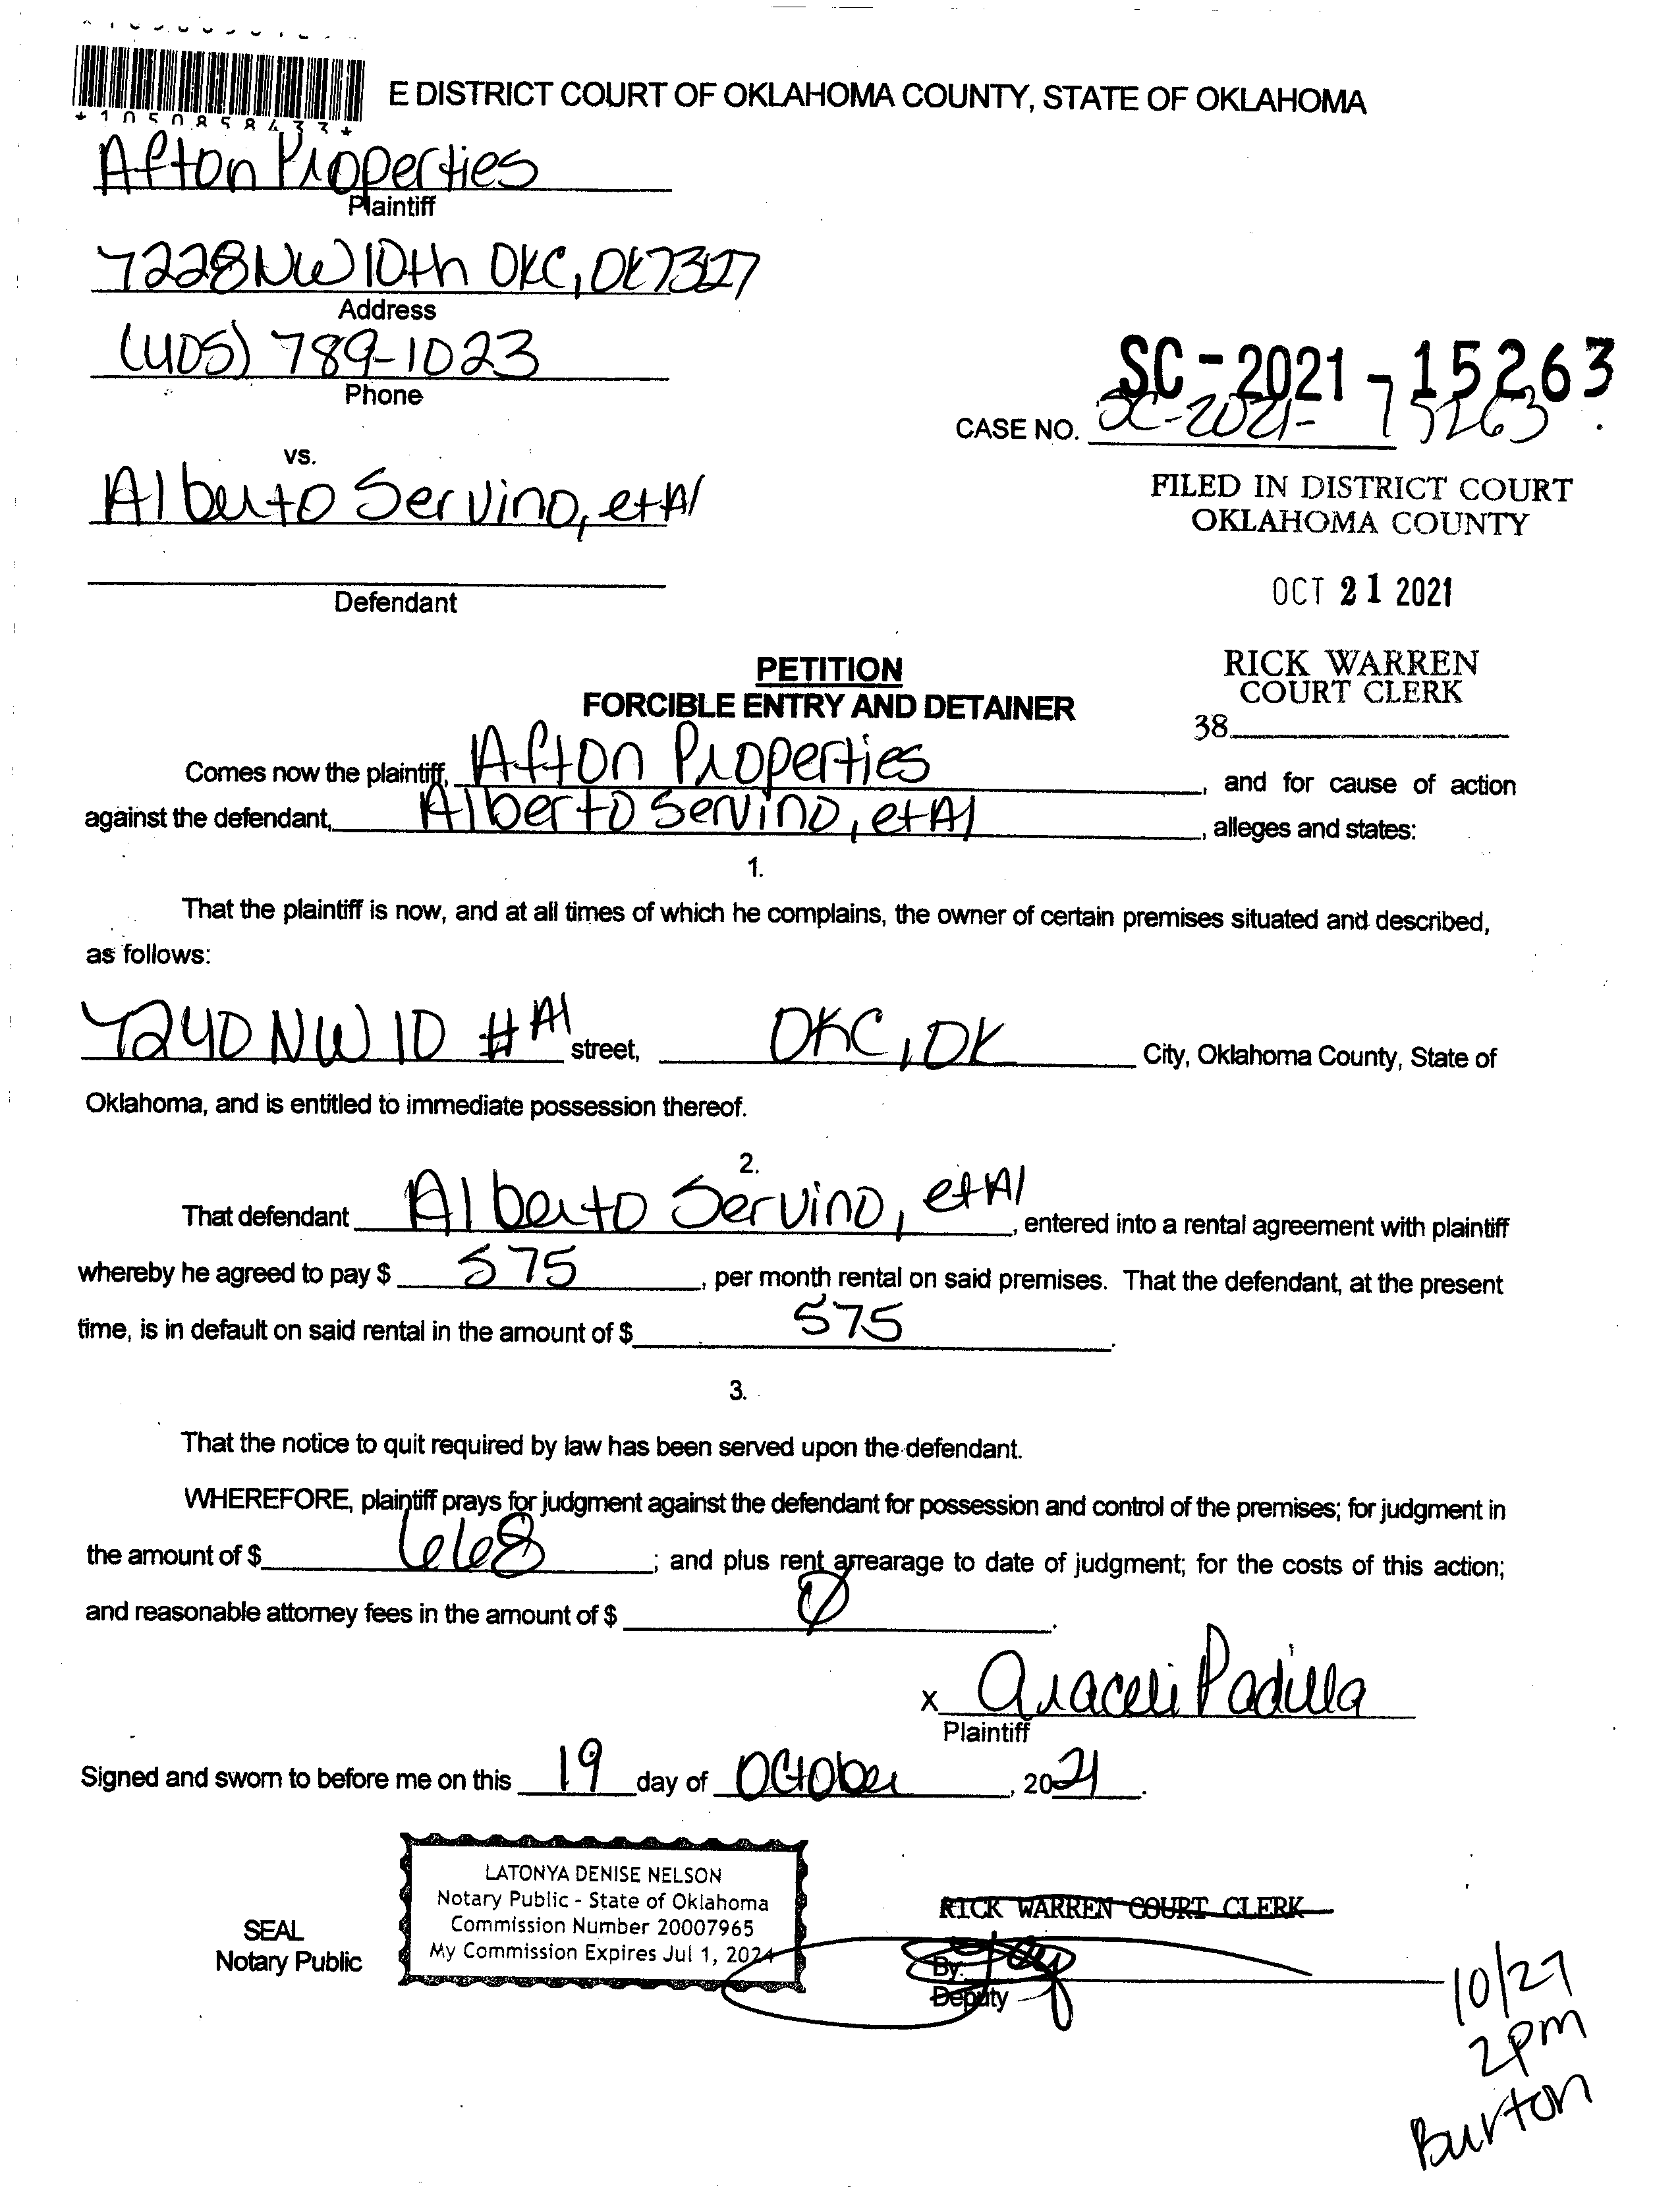 *1050858433*
E DISTRICT COURT OF OKLAHOMA COUNTY, STATE OF OKLAHOMA
Afton Properties
Plaintiff
7228 NW 10th OKC, OK 73127
Address
(405) 789-1023
Phone
SC-2021-15263
CASE NO. SC-2021-15263
vs.
Alberto Servino, et Al
FILED IN DISTRICT COURT
OKLAHOMA COUNTY
Defendant
OCT 21 2021
PETITION
FORCIBLE ENTRY AND DETAINER
RICK WARREN
COURT CLERK
38
Comes now the plaintiff, Afton Properties, and for cause of action
against the defendant, Alberto Servino, et Al, alleges and states:
1.
That the plaintiff is now, and at all times of which he complains, the owner of certain premises situated and described,
as follows:
7240 NW 10 #A1 street, OKC, OK City, Oklahoma County, State of
Oklahoma, and is entitled to immediate possession thereof.
2.
That defendant Alberto Servino, et Al, entered into a rental agreement with plaintiff
whereby he agreed to pay $ 575, per month rental on said premises. That the defendant, at the present
time, is in default on said rental in the amount of $ 575.
3.
That the notice to quit required by law has been served upon the defendant.
WHEREFORE, plaintiff prays for judgment against the defendant for possession and control of the premises; for judgment in
the amount of $ 668; and plus rent arrearage to date of judgment; for the costs of this action;
and reasonable attorney fees in the amount of $ 0.
x Araceli Padilla
Plaintiff
Signed and sworn to before me on this 19 day of October, 2021.
SEAL
Notary Public
LATONYA DENISE NELSON
Notary Public - State of Oklahoma
Commission Number 20007965
My Commission Expires Jul 1, 2024
RICK WARREN COURT CLERK
By:
Deputy
10/27
2pm
Burton